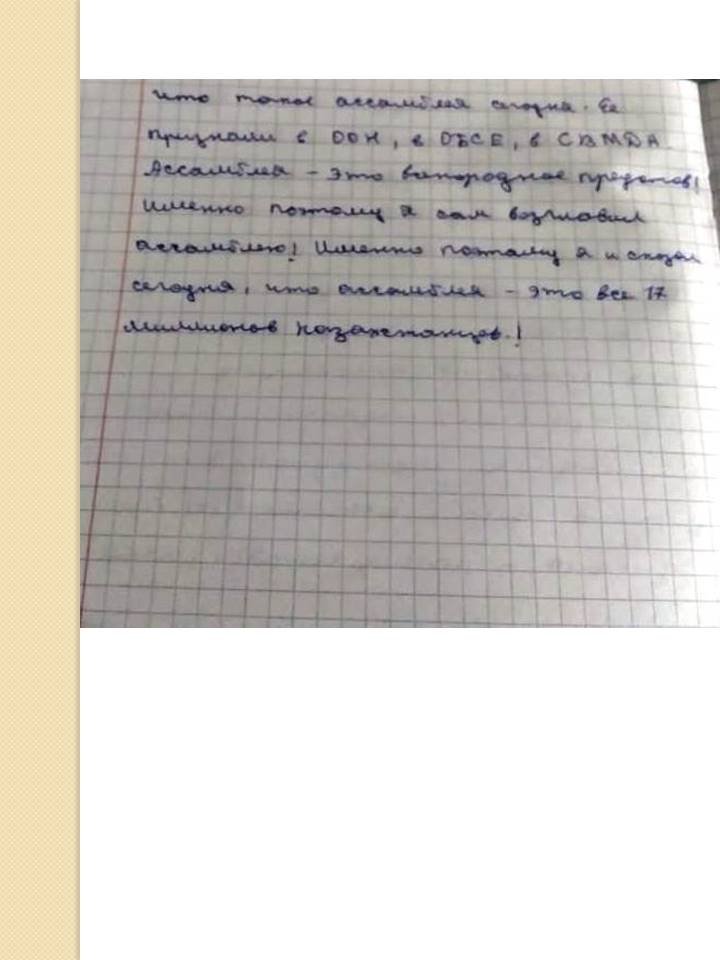 что такое ассамблея сегодня. Ее
признали в ООН, в ОБСЕ, в СВМДА
Ассамблея – это
именно потому я сам возглавил
ассамблею! Именно потому я и сказал
сегодня, что ассамблея – это все 17
миллионов казахстанцев.!